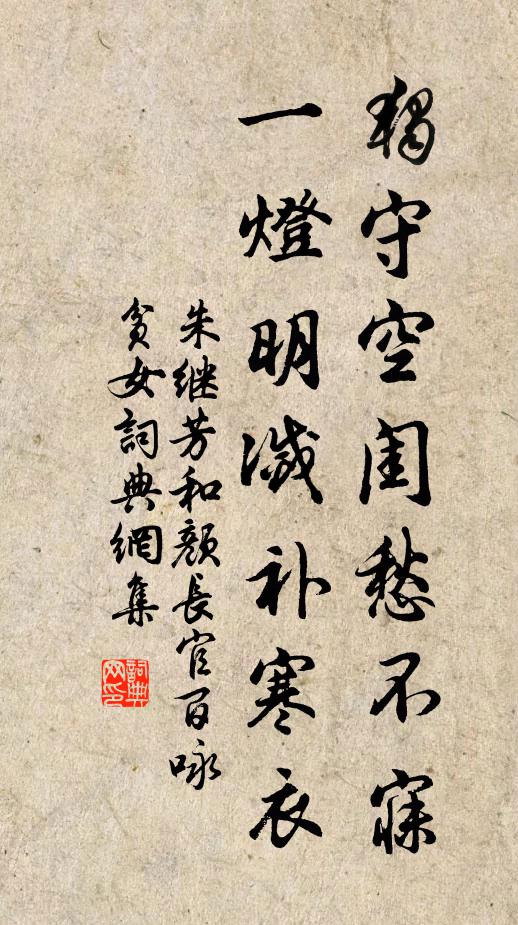 獨守空闺愁不寐
一燈明滅补寒衣
朱继芳和顏長官百咏
貧女詞典網集
詞典
网印